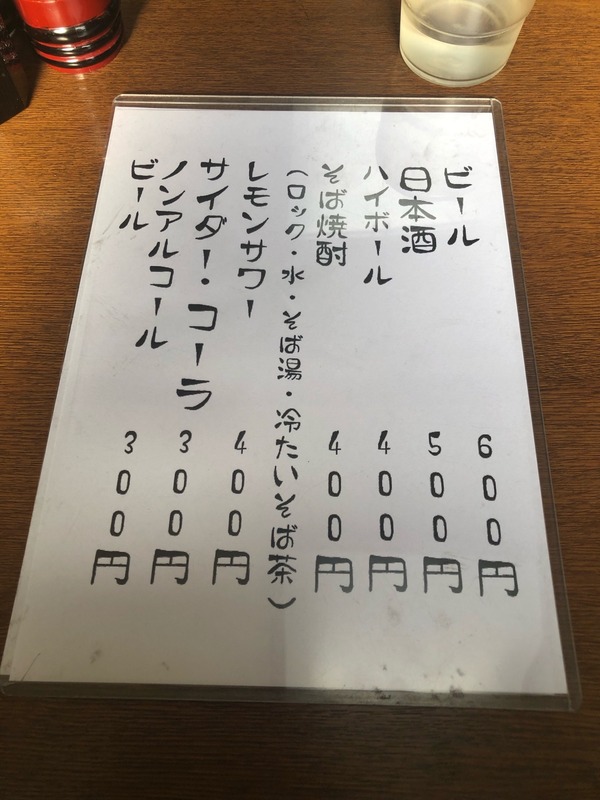 ビール 600円
日本酒 500円
ハイボール 400円
そば焼酎 400円
（ロック・水・そば湯・冷たいそば茶）
レモンサワー 400円
サイダー・コーラ 300円
ノンアルコール
ビール 300円